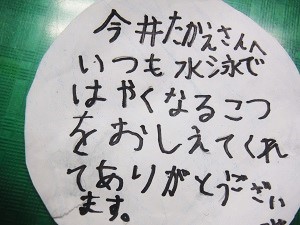 今井たかえさんへ
いつも水泳で
はやくなるこつ
をおしえてくれ
てありがとうござい
ます。